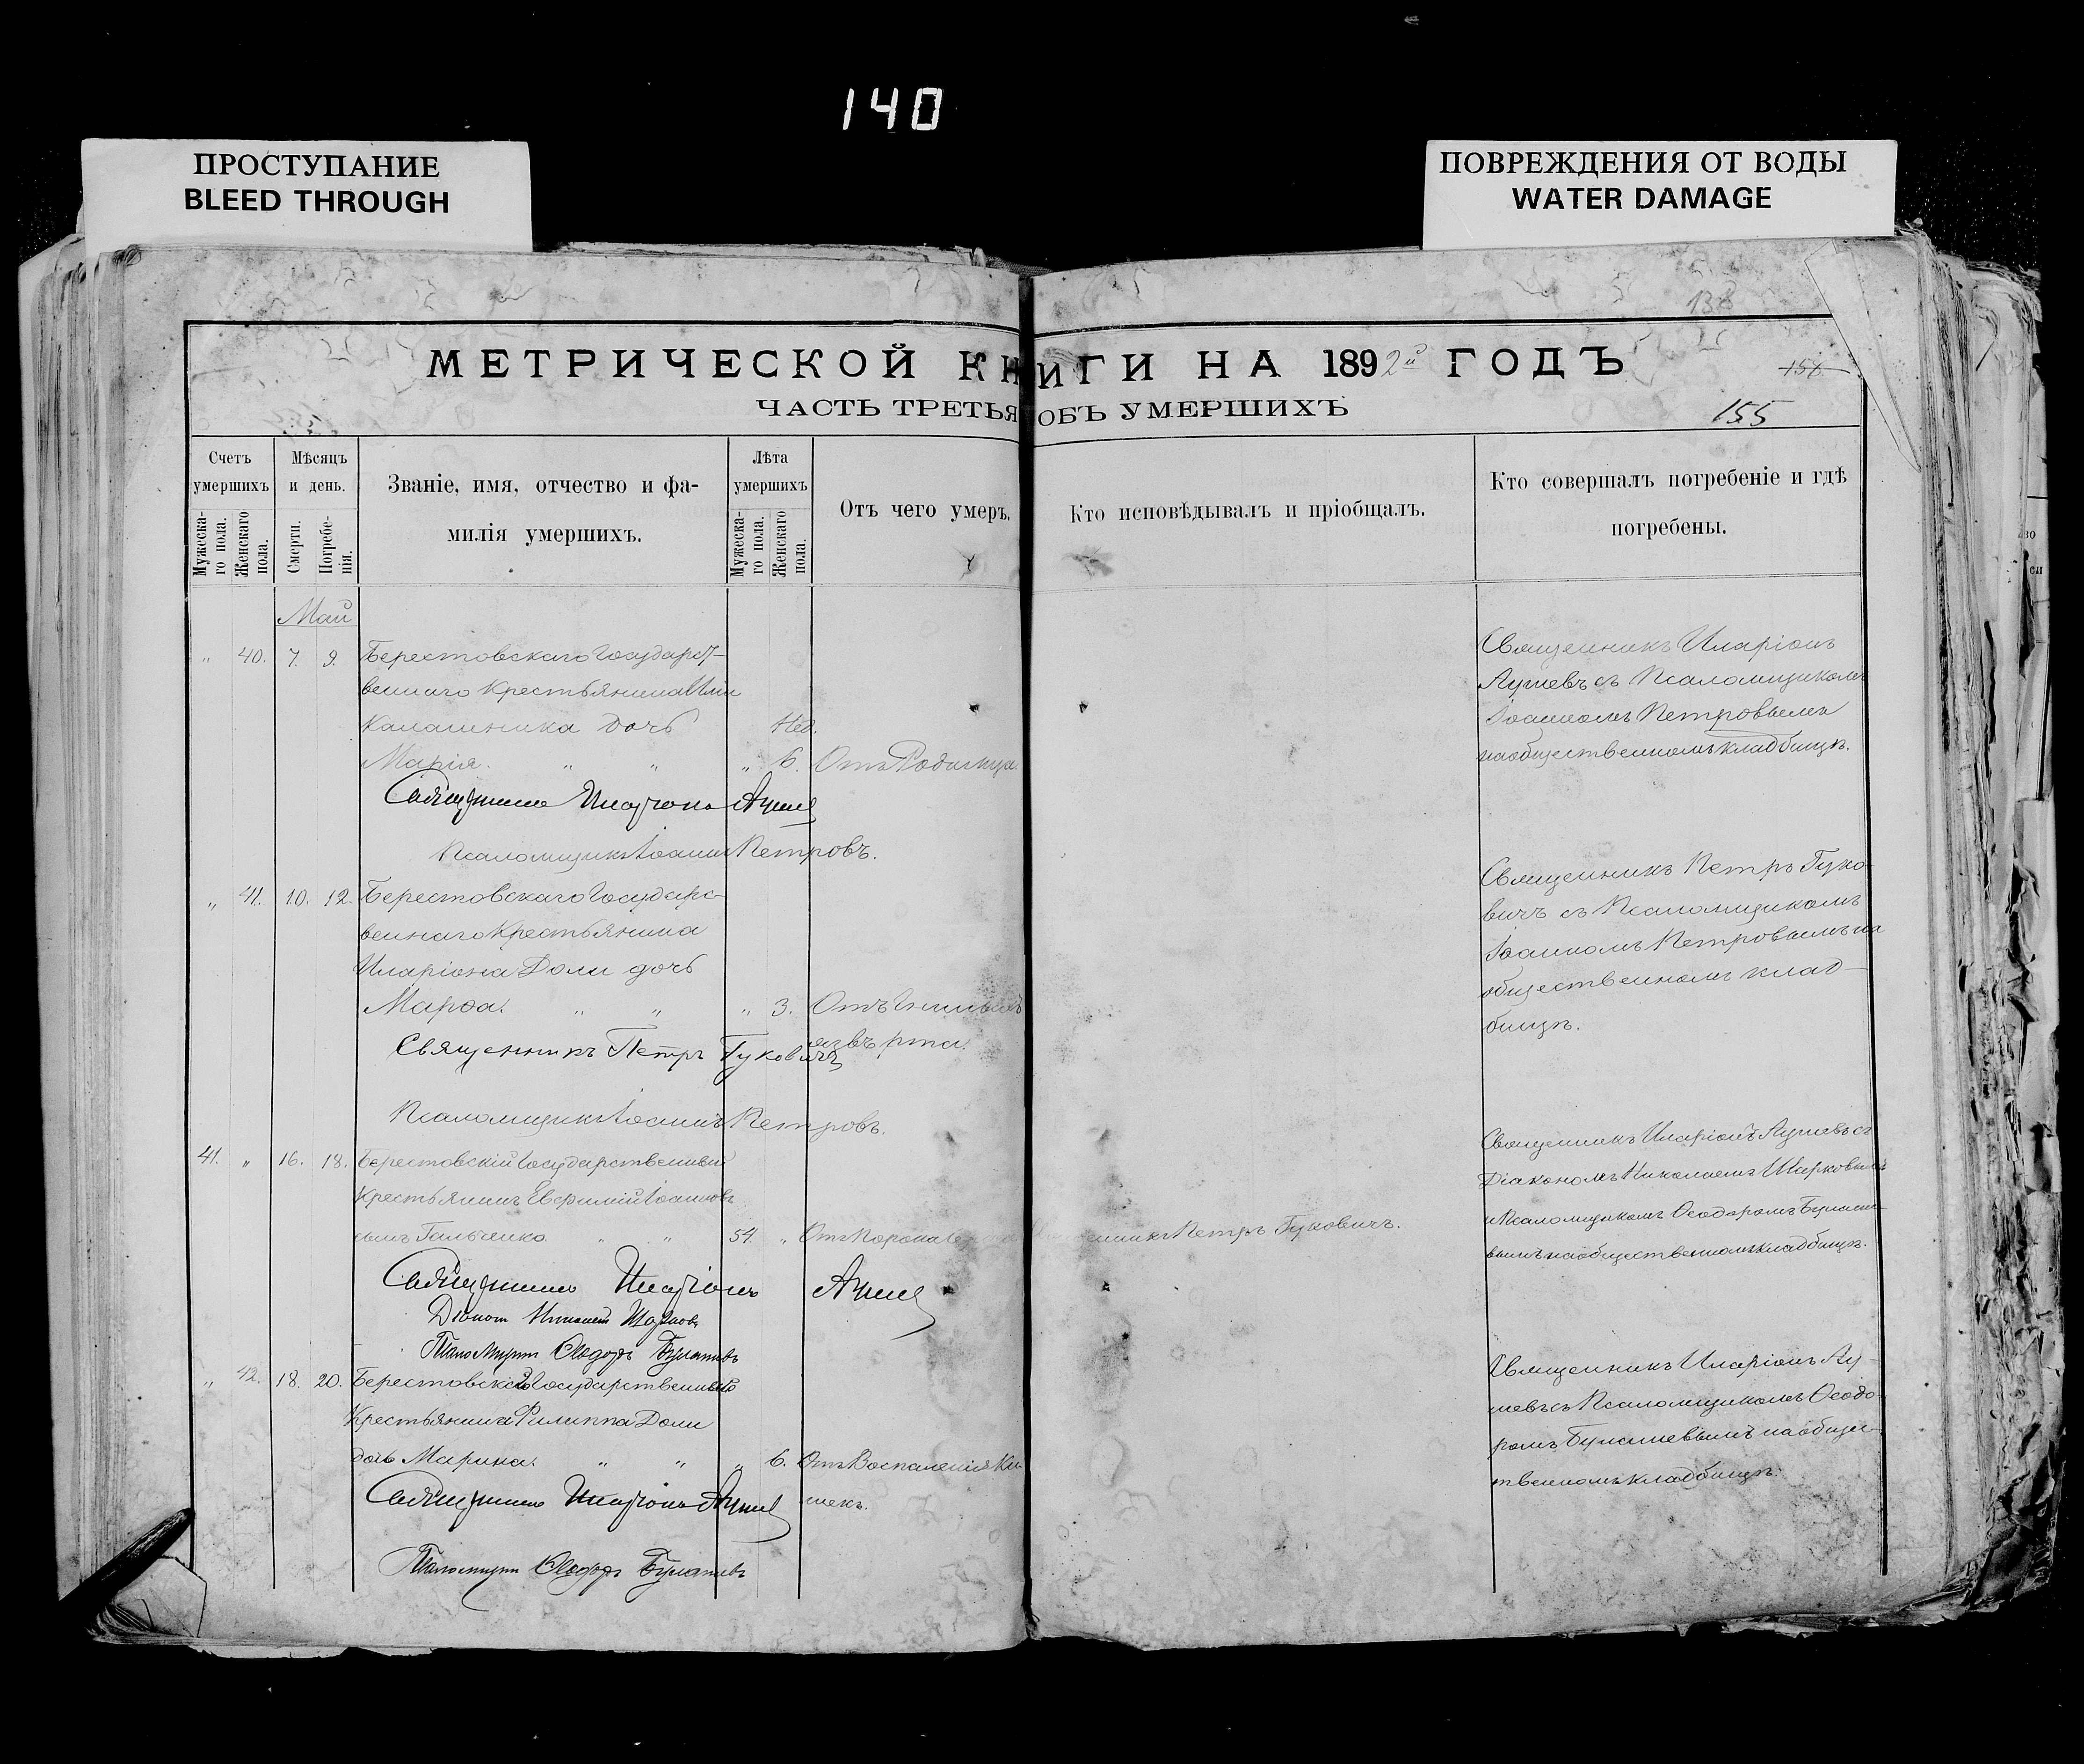 140
ПРОСТУПАНИЕ
BLEED THROUGH
ПОВРЕЖДЕНИЯ ОТ ВОДЫ
WATER DAMAGE
138
МЕТРИЧЕСКОЙ КНИГИ НА 1892й ГОДЪ
158
ЧАСТЬ ТРЕТЬЯ ОБЪ УМЕРШИХЪ
155
Счетъ умершихъ
Мужеска-
го пола.
Женскаго
пола.
Мѣсяцъ
и день.
Смерти.
Погребе-
нія.
Званіе, имя, отчество и фа-
милія умершихъ.
Лѣта
умершихъ
Мужеска-
го пола.
Женскаго
пола.
Отъ чего умеръ.
Кто исповѣдывалъ и пріобщалъ.
Кто совершалъ погребеніе и гдѣ
погребены.
Май
„ 40. 7. 9. Берестовскаго Государст-
веннаго Крестьянина
Калашника дочь Нед.
Марія. „ „ „ 6. Отъ Родимца.
Священникъ Иларіонъ
Псаломщикъ Іоаннъ Петровъ.
Священникъ Иларіонъ
съ Псаломщикомъ
Іоанномъ Петровымъ
на общественномъ кладбищѣ.
„ 41. 10. 12. Берестовскаго Государс-
твеннаго Крестьянина
Иларіона Доли дочь
Марѳа. „ „ „ 3. Отъ
язвъ рта.
Священникъ Петръ Гуковичъ
Псаломщикъ Іоаннъ Петровъ.
Священникъ Петръ Гуко-
вичъ съ Псаломщикомъ
Іоанномъ Петровымъ на
общественномъ клад-
бищѣ.
41. „ 16. 18. Берестовскій Государственный
Крестьянинъ Евфимій Іоанновъ
сынъ Гальченко. „ „ 54. „ Отъ
Петръ Гуковичъ.
Священникъ Иларіонъ
Діаконъ Николай Шарковъ
Псаломщикъ Ѳеодоръ
Священникъ Иларіонъ съ
Діакономъ Николаемъ Шарковымъ
и Псаломщикомъ Ѳеодоромъ
на общественномъ кладбищѣ.
„ 42. 18. 20. Берестовскаго Государственнаго
Крестьянина Филиппа Доли
дочь Марина. „ „ „ 6. Отъ Воспаленія Ки-
шекъ.
Священникъ Иларіонъ
Псаломщикъ Ѳеодоръ
Священникъ Иларіонъ
съ Псаломщикомъ Ѳеодо-
ромъ на общес-
твенномъ кладбищѣ.